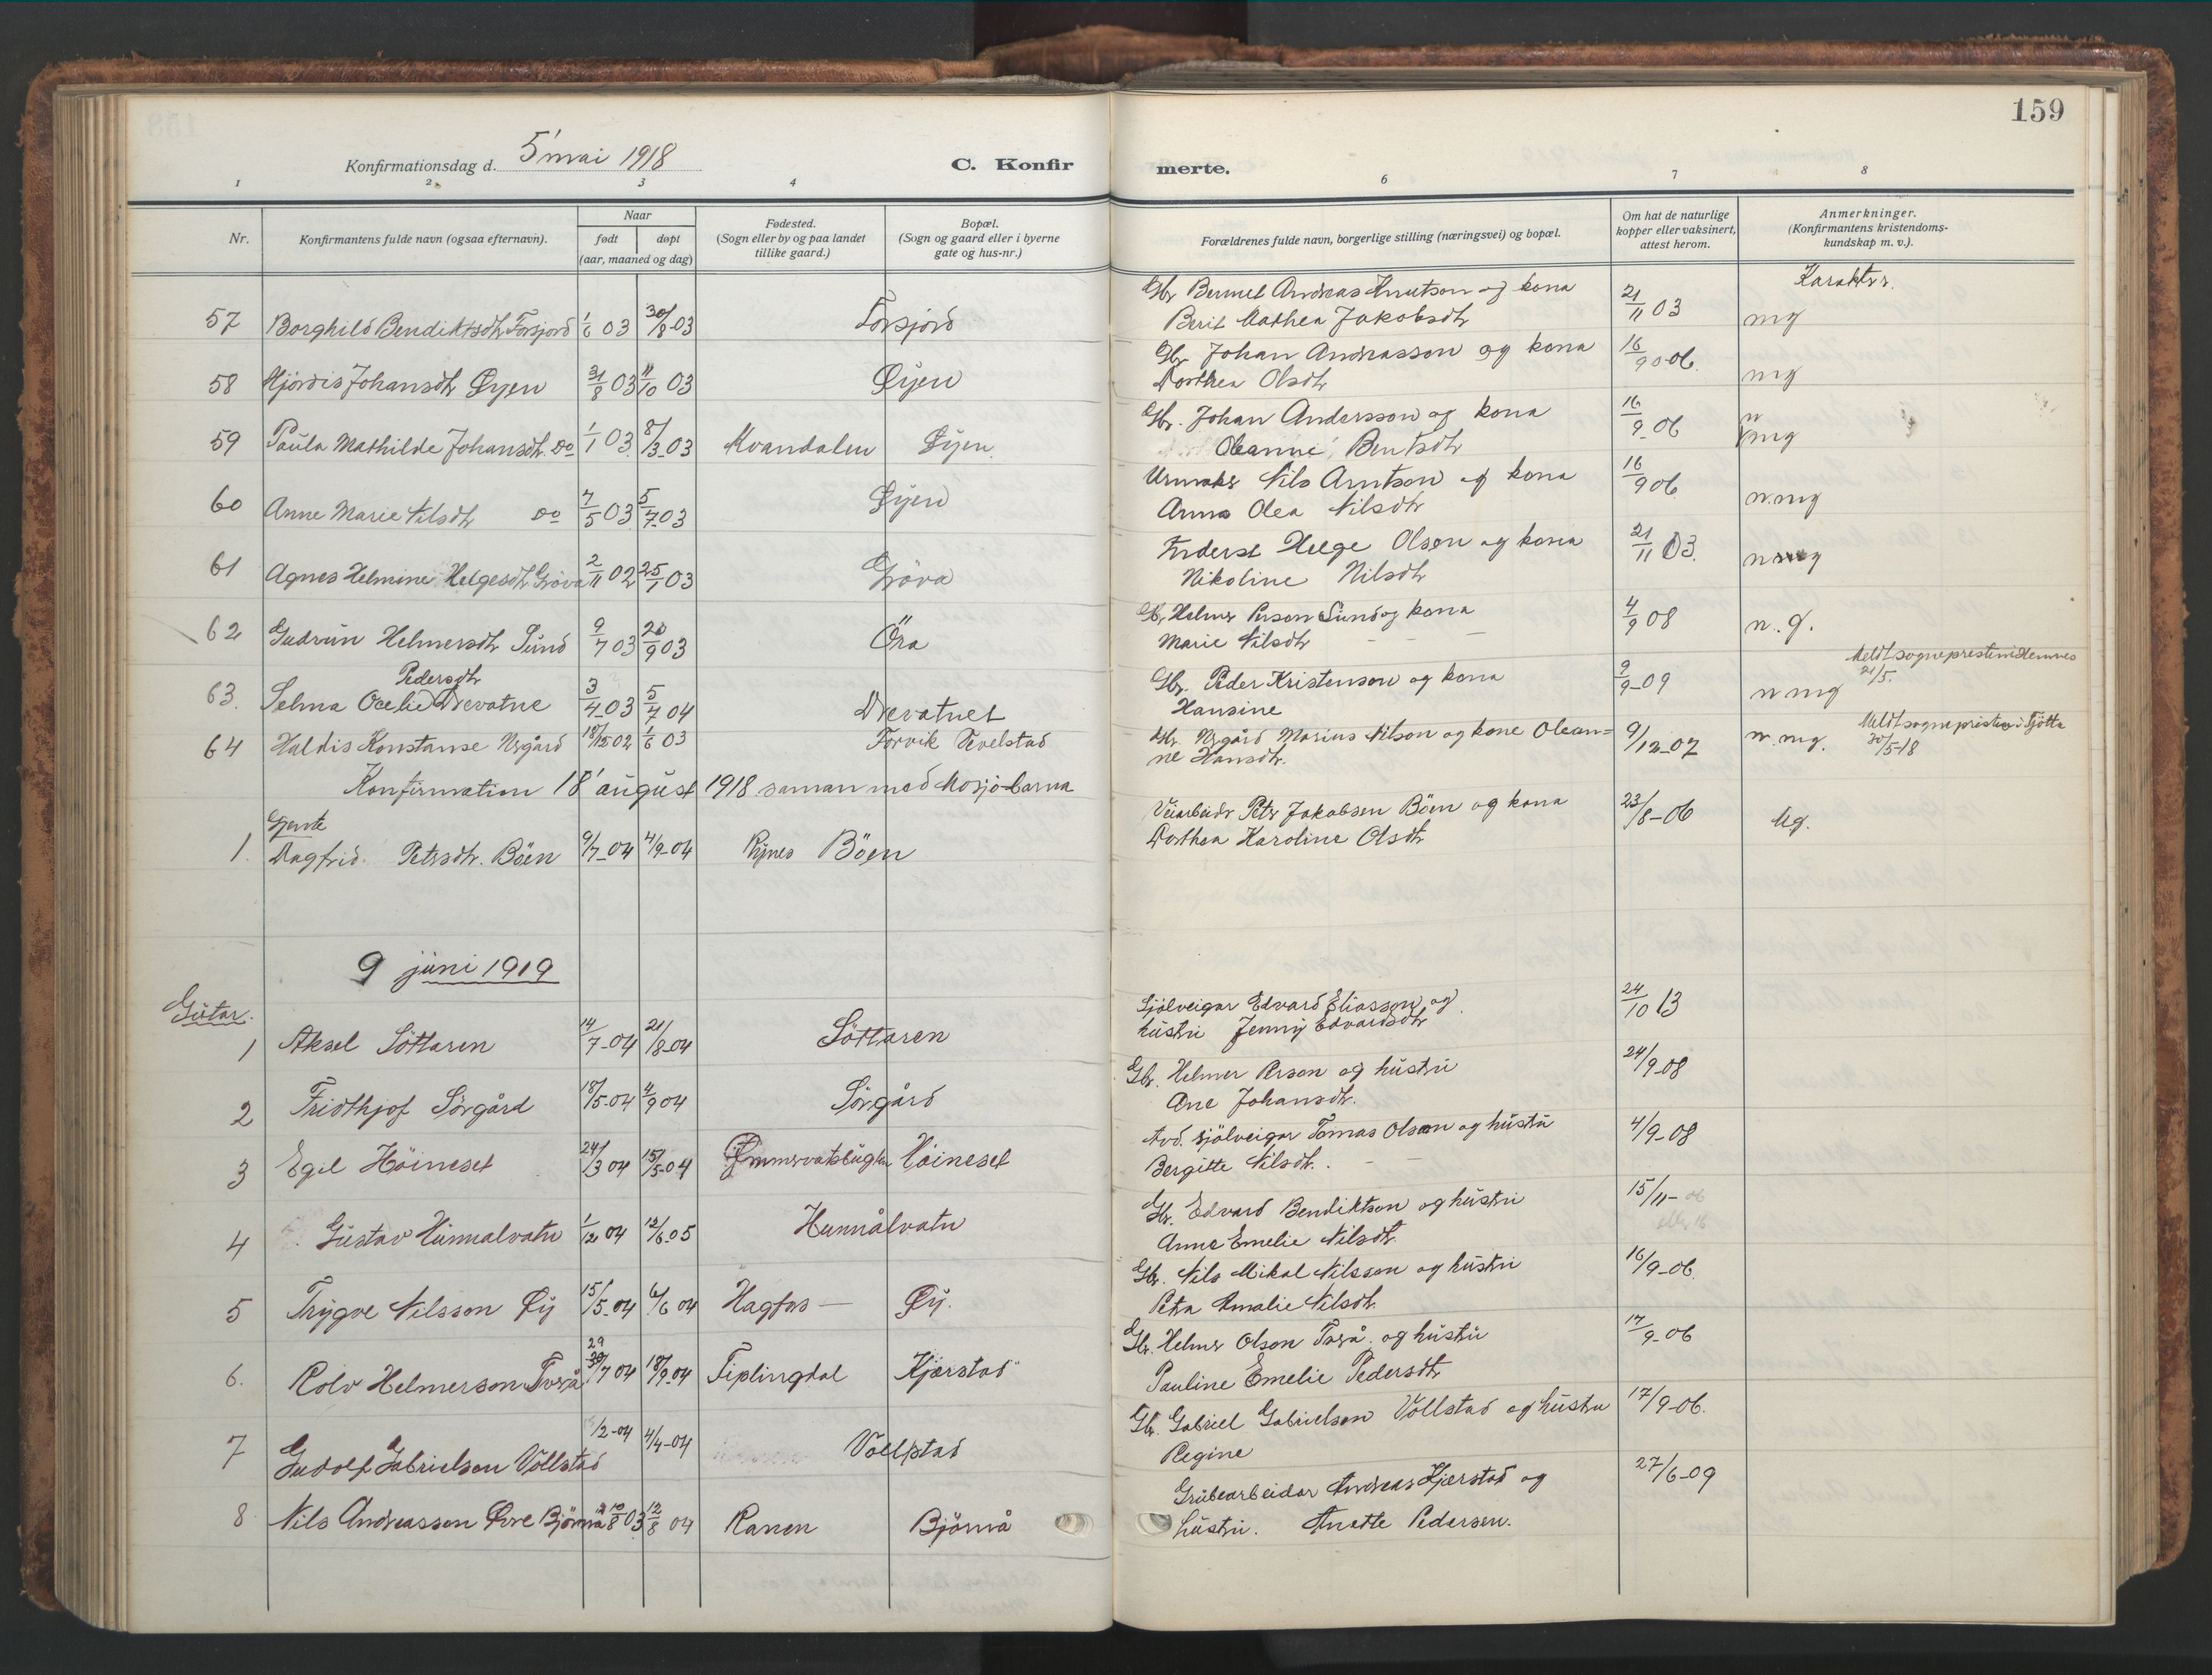 159
Konfirmationsdag d. 5' mai 1918
C. Konfirmerte.
1 2 3 4 6 7 8
Nr.
Konfirmantens fulde navn (ogsaa efternavn).
Naar
født døpt
(aar, maaned og dag)
Fødested.
(Sogn eller by og paa landet
tillike gaard.)
Bopæl.
(Sogn og gaard eller i byerne
gate og hus-nr.)
Forældrenes fulde navn, borgerlige stilling (næringsvei) og bopæl.
Om hat de naturlige
kopper eller vaksinert,
attest herom.
Anmerkninger.
(Konfirmantens kristendoms-
kundskap m. v.).
Karakter.
Gbr Bernet Andreas Knutson og kona
57 Borghild Bendiktsdtr Forsjord 1/6 03 30/8-03 Forsjord Berit Mathea Jakobsdtr 21/11 03 mg
Gbr. Johan Andreasson og kona
58 Hjördis Johansdtr Øyen 31/8 03 11/10 03 Øyen Dorthea Olsdtr 16/9 06. mg
Gbr. Johan Andersson og kona
59 Paula Mathilde Johansdtr. Do 1/1 03 8/3-03 Kvandalen Øyen. Oleanne Bentsdtr 16/9-06 mg
Urmaker Nils Arntson og kona
60 Anne Marie Nilsdtr Do 7/5 03 5/7-03 Øyen Anna Olea Nilsdtr 16/9 06 n. mg
Inderst Helge Olsen og kona
61 Agnes Helmine Helgesdtr Gröva 2/11 02 25/1 03 Gröva Nikoline Nilsdtr 21/11 03. n mg
Gbr Helmer Person Sund og kona
62 Gudrun Helmersdtr Sund 9/7 03 20/9 03 Öra Marie Nilsdtr 4/9 08 n. g.
Pedersdtr
Gbr. Peder Kristenson og kona
63. Selma Ocelie Drevatne 3/4-03 5/7 04 Drevatnet Hansine 9/9-09 n mg Meldt sognepresten i Hemnes
21/5.
64 Haldis Konstanse Nygård 18/12 02 1/6 03 Forvik Sevelstad Gbr. Nygård Marius Nilson og kone Olean=
ne Hansdtr. 9/12-07 n. mg. Meldt sognepresten i Tjötta
30/5-18
Konfirmation 18' august 1918 saman med Mosjö-barna
Gjente
Veiarbeidr Peter Jakobsen Böen og kona
1. Dagfrid. Petersdtr. Böen 9/7-04 4/9-04 Rynes Böen Dorthea Karoline Olsdtr 23/8-06 Mg.
9 juni 1919
Gutar.
Sjölveigar Edvard Eliasson og
1 Aksel Söttaren 14/7-04 21/8-04 Söttaren hustru Jenny Edvardsdtr 24/10 13
Gbr. Helmer Person og hustru
2 Fridthjof Sörgård 18/5-04 4/9 04 Sörgård Ane Johansdtr. 24/9-08
Avd. sjölveigar Tomas Olsen og hustru
3 Egil Höineset 24/3 04 15/5-04 Höineset Bergitte Nilsdtr. 4/9-08
Gbr. Edvard Bendiktson og hustru
4 Gustav Hunnalvatn 1/12 04 12/6-05 Hunnålvatn Anna Emelie Nilsdtr. 15/11-06
Gbr. Nils Mikal Nilsson og hustru
5 Trygve Nilsson Öy 15/5-04 6/6 04 Hagfos — Öy. Petra Amalie Nilsdtr. 16/9-06.
Gbr. Helmer Olson Tverå. og hustru
6. Rolv Helmerson Tverå 29/7 04 18/9-04 Tiplingdal Kjærstad Pauline Emelie Pedersdtr 17/9-06
Gbr. Gabriel Gabrielsen Vollstad og hustru
7 Gudolf Gabrielsen Vollstad /2-04 4/4-04 Vollstad Regine 17/9-06.
Grubearbeidar Andreas Kjærstad og
8 Nils Andreasson Övre Björnå 10/8 03 12/8 04 Ranen Björnå hustru. Anette Pedersen. 27/6-09